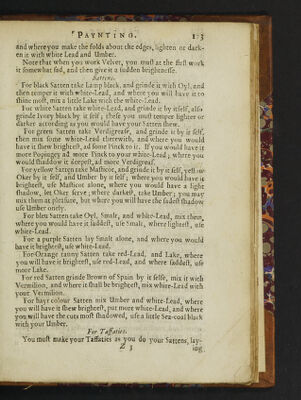 PAYNTING. 113
and where you make the folds about the edges, lighten or dark-
en it with white Lead and Umber.
Note that when you work Velvet, you must at the first work
it somewhat sad, and then give it a sudden brightnesse.
Sattens.
For black Satten take Lamp black, and grinde it with Oyl, and
then temper it with white-Lead, and where you will have it to
shine most, mix a little Lake with the white-Lead.
For white Satten take white-Lead, and grinde it by itself, also
grinde Ivory black by it self; these you must temper lighter or
darker according as you would have your Satten shew.
For green Satten take Verdigrease, and grinde it by it self,
then mix some white-Lead therewith, and where you would
have it shew brightest, ad some Pinck to it. If you would have it
more Popingey ad more Pinck to your white-Lead; where you
would shaddow it deepest, ad more Verdigrease.
For yellow Satten take Masticot, and grinde it by it self, yellow
Oker by it self, and Umber by it self; where you would have it
brightest, use Masticot alone, where you would have a light
shadow, let Oker serve; where darkest, take Umber; you may
mix them at pleasure, but where you will have the sadest shadow
use Umber onely.
For bleu Satten take Oyl, Smalt, and white-Lead, mix them,
where you would have it saddest, use Smalt, where lightest, use
white-Lead.
For a purple Satten lay Smalt alone, and where you would
have it brightest, use white-Lead.
For Orange tauny Satten take red-Lead, and Lake, where
you will have it brightest, use red-Lead, and where saddest, use
more Lake.
For red Satten grinde Brown of Spain by it selfe, mix it with
Vermilion, and where it shall be brightest, mix white-Lead with
your Vermilion.
For hayr colour Satten mix Umber and white-Lead, where
you will have it shew brightest, put more white-Lead, and where
you will have the cuts most shadowed, use a little Sea-coal black
with your Umber.
For Taffaties.
You must make your Taffaties as you do your Sattens, lay-
Z 3 ing